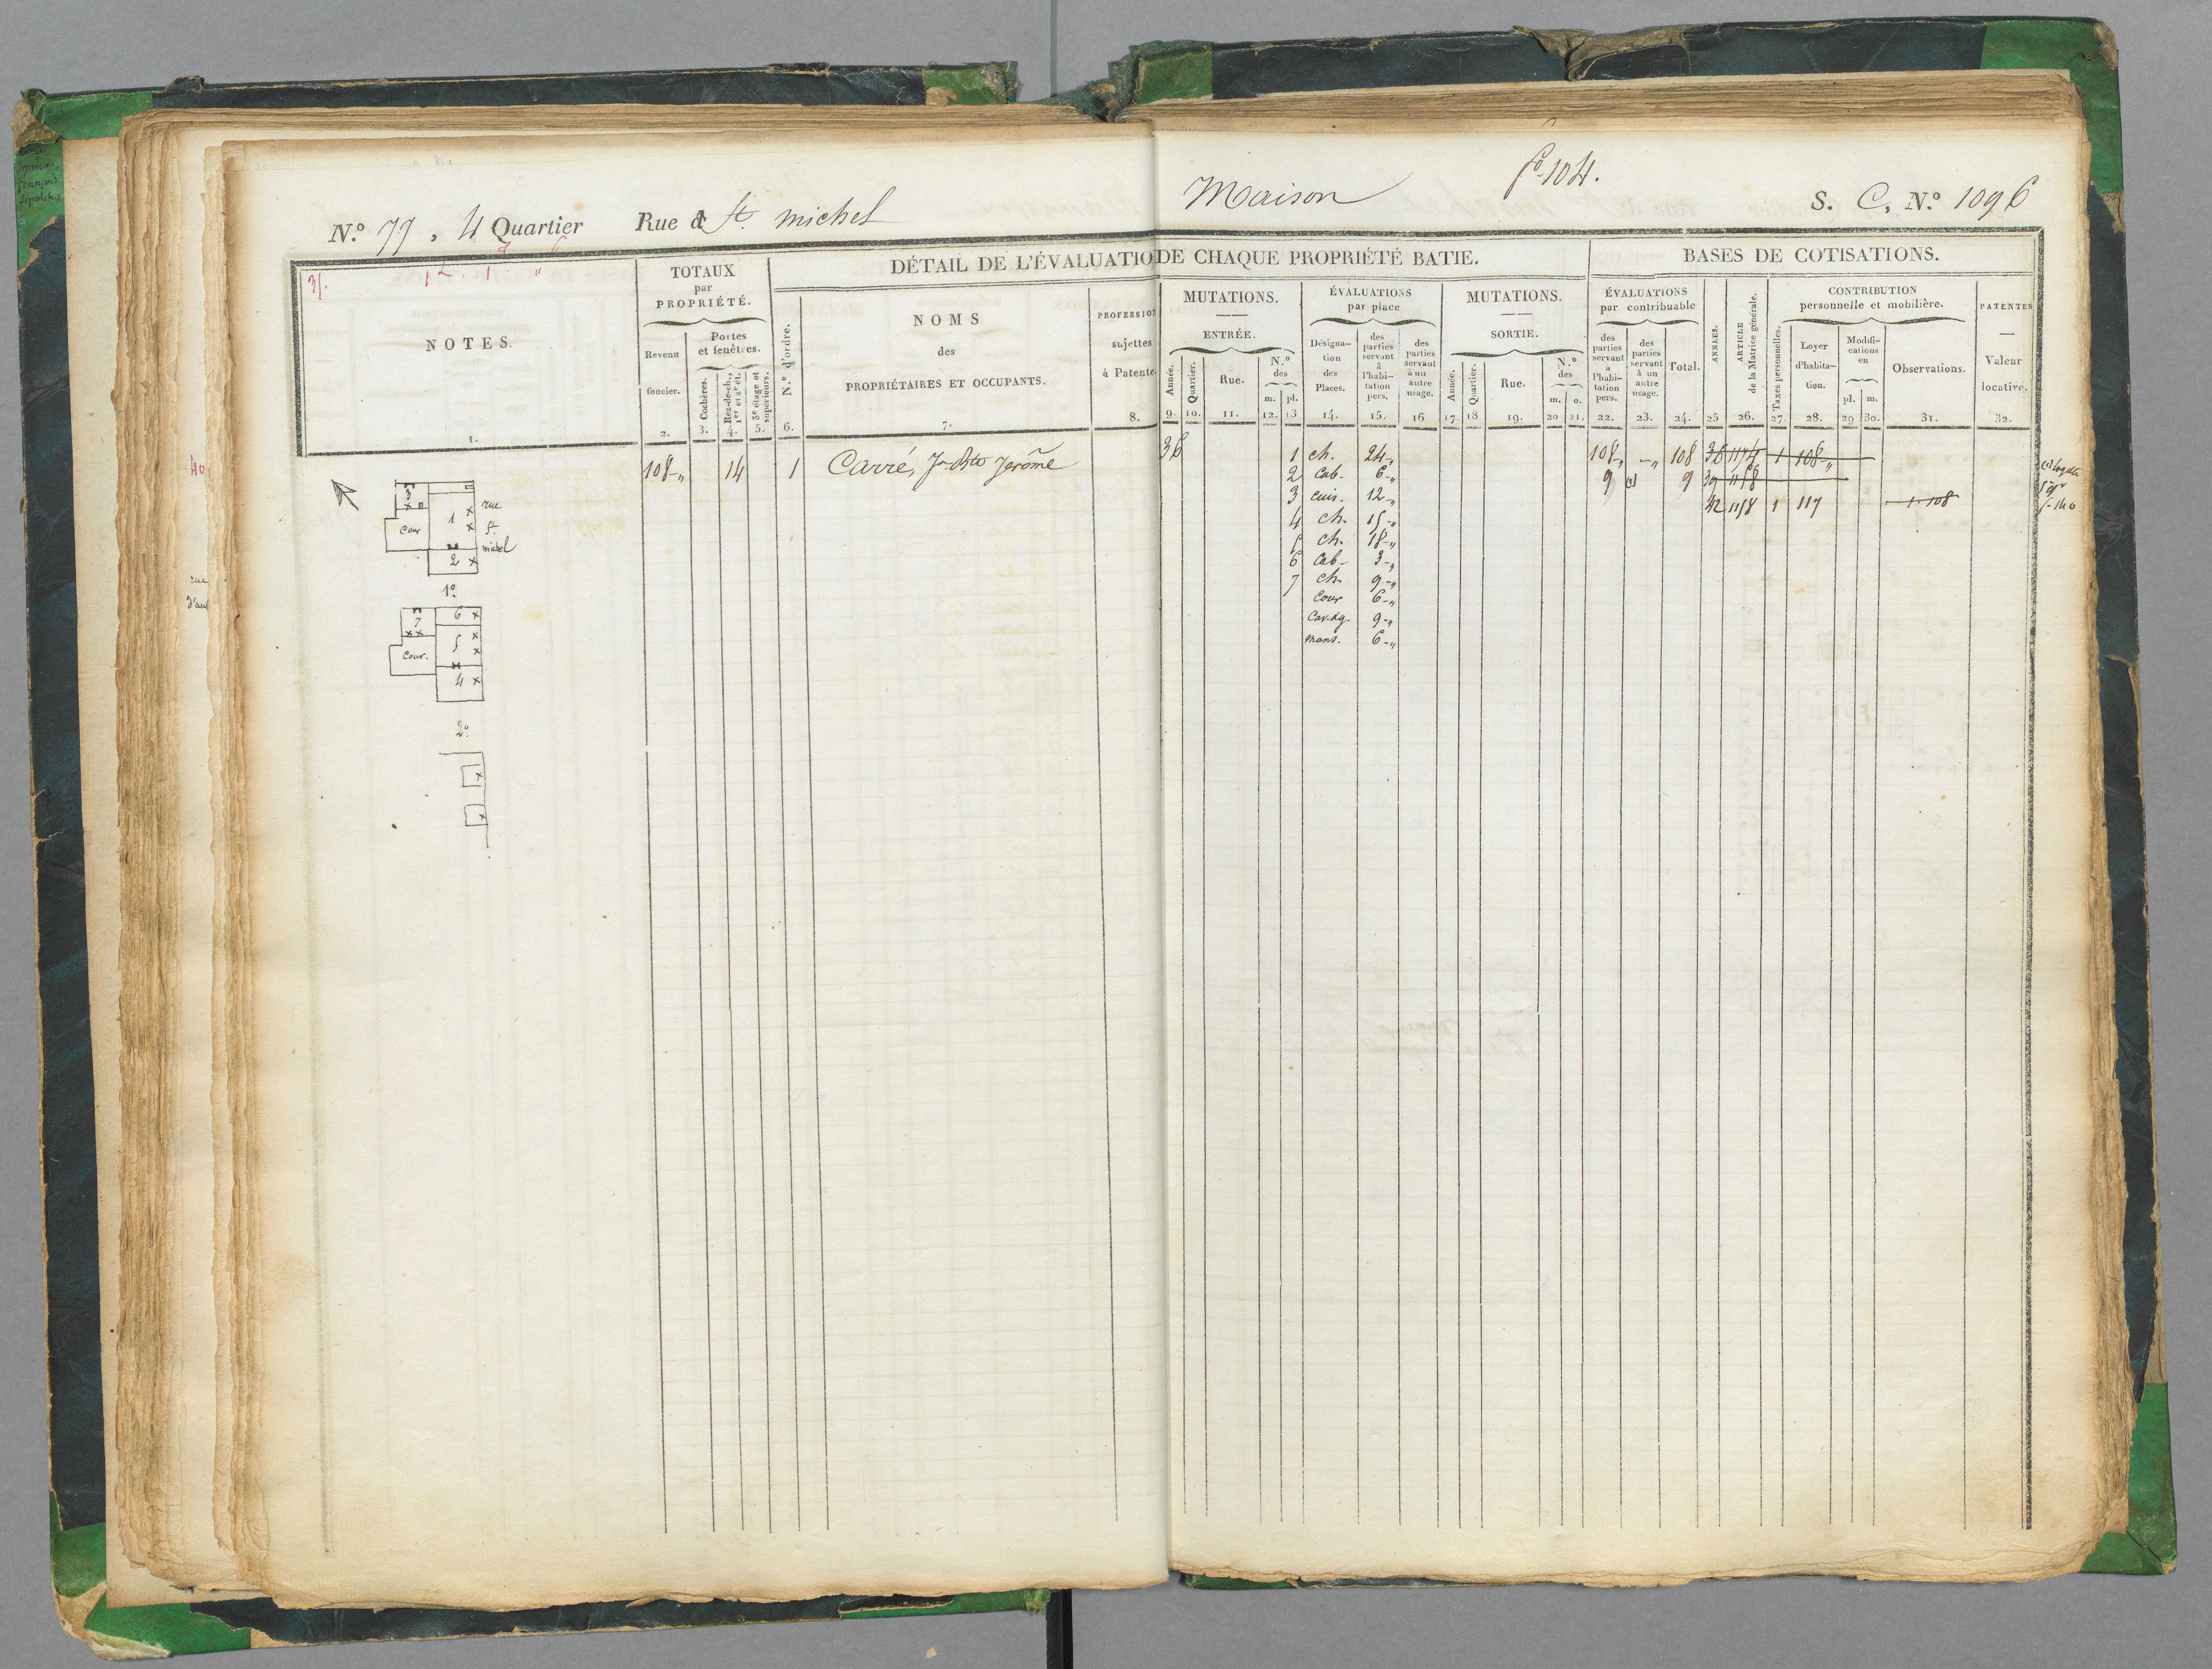 fo 104.
No. 77, 4 Quartier Rue de St. michel Maison S. C, No. 1096
31.
NOTES.
1.
TOTAUX
par
PROPRIÉTÉ.
Revenu
foncier.
2.
Portes
et fenêtres.
Cochères.
3.
Rez-de-ch.,
1er et 2e ét.
4.
3e étage et
supérieurs.
5.
DÉTAIL DE L'ÉVALUATIO DE CHAQUE PROPRIÉTÉ BATIE.
N.o d'ordre.
6.
NOMS
des
PROPRIÉTAIRES ET OCCUPANTS.
7.
PROFESSION
sujettes
à Patente
8.
MUTATIONS.
ENTRÉE.
Année.
9.
Quartier.
10.
Rue.
11.
N.o
des
m. pl.
12. 13
ÉVALUATIONS
par place
Désigna-
tion
des
Places.
14.
des
parties
servant
à
l'habi-
tation
pers.
15.
des
parties
servant
à un
autre
usage.
16
MUTATIONS.
SORTIE.
Année.
17.
Quartier.
18
Rue.
19.
N.o
des
m. o.
20 21.
BASES DE COTISATIONS.
ÉVALUATIONS
par contribuable
des
parties
servant
a
l'habi-
tation
pers.
22.
des
parties
servant
à un
autre
usage.
23.
Total.
24.
ANNÉES.
25
ARTICLE
de la Matrice générale.
26.
CONTRIBUTION
personnelle et mobilière.
Taxes personnelles.
27.
Loyer
d'habita-
tion.
28.
Modifi-
cations
en
pl. m.
29 30.
Observations.
31.
PATENTES
Valeur
locative.
32.
108-„ 14 1 Carré, Jn Bte Jerôme 36
1 ch. 24-„
2 Cab- 6-„
3 cuis. 12-„
4 ch. 15-„
5 ch. 18-„
6 Cab- 3-„
7 ch- 9-„
Cour 6-„
Cav. 9-„
mans. 6-„
108-„ -„ 108 36 1174 1 108-„
9 9 39 1158
42 1158 1 117 1-108
3
Cour
1
2
rue
St.
michel
1o.
7
6
5
Cour.
4
2o.
40
rue